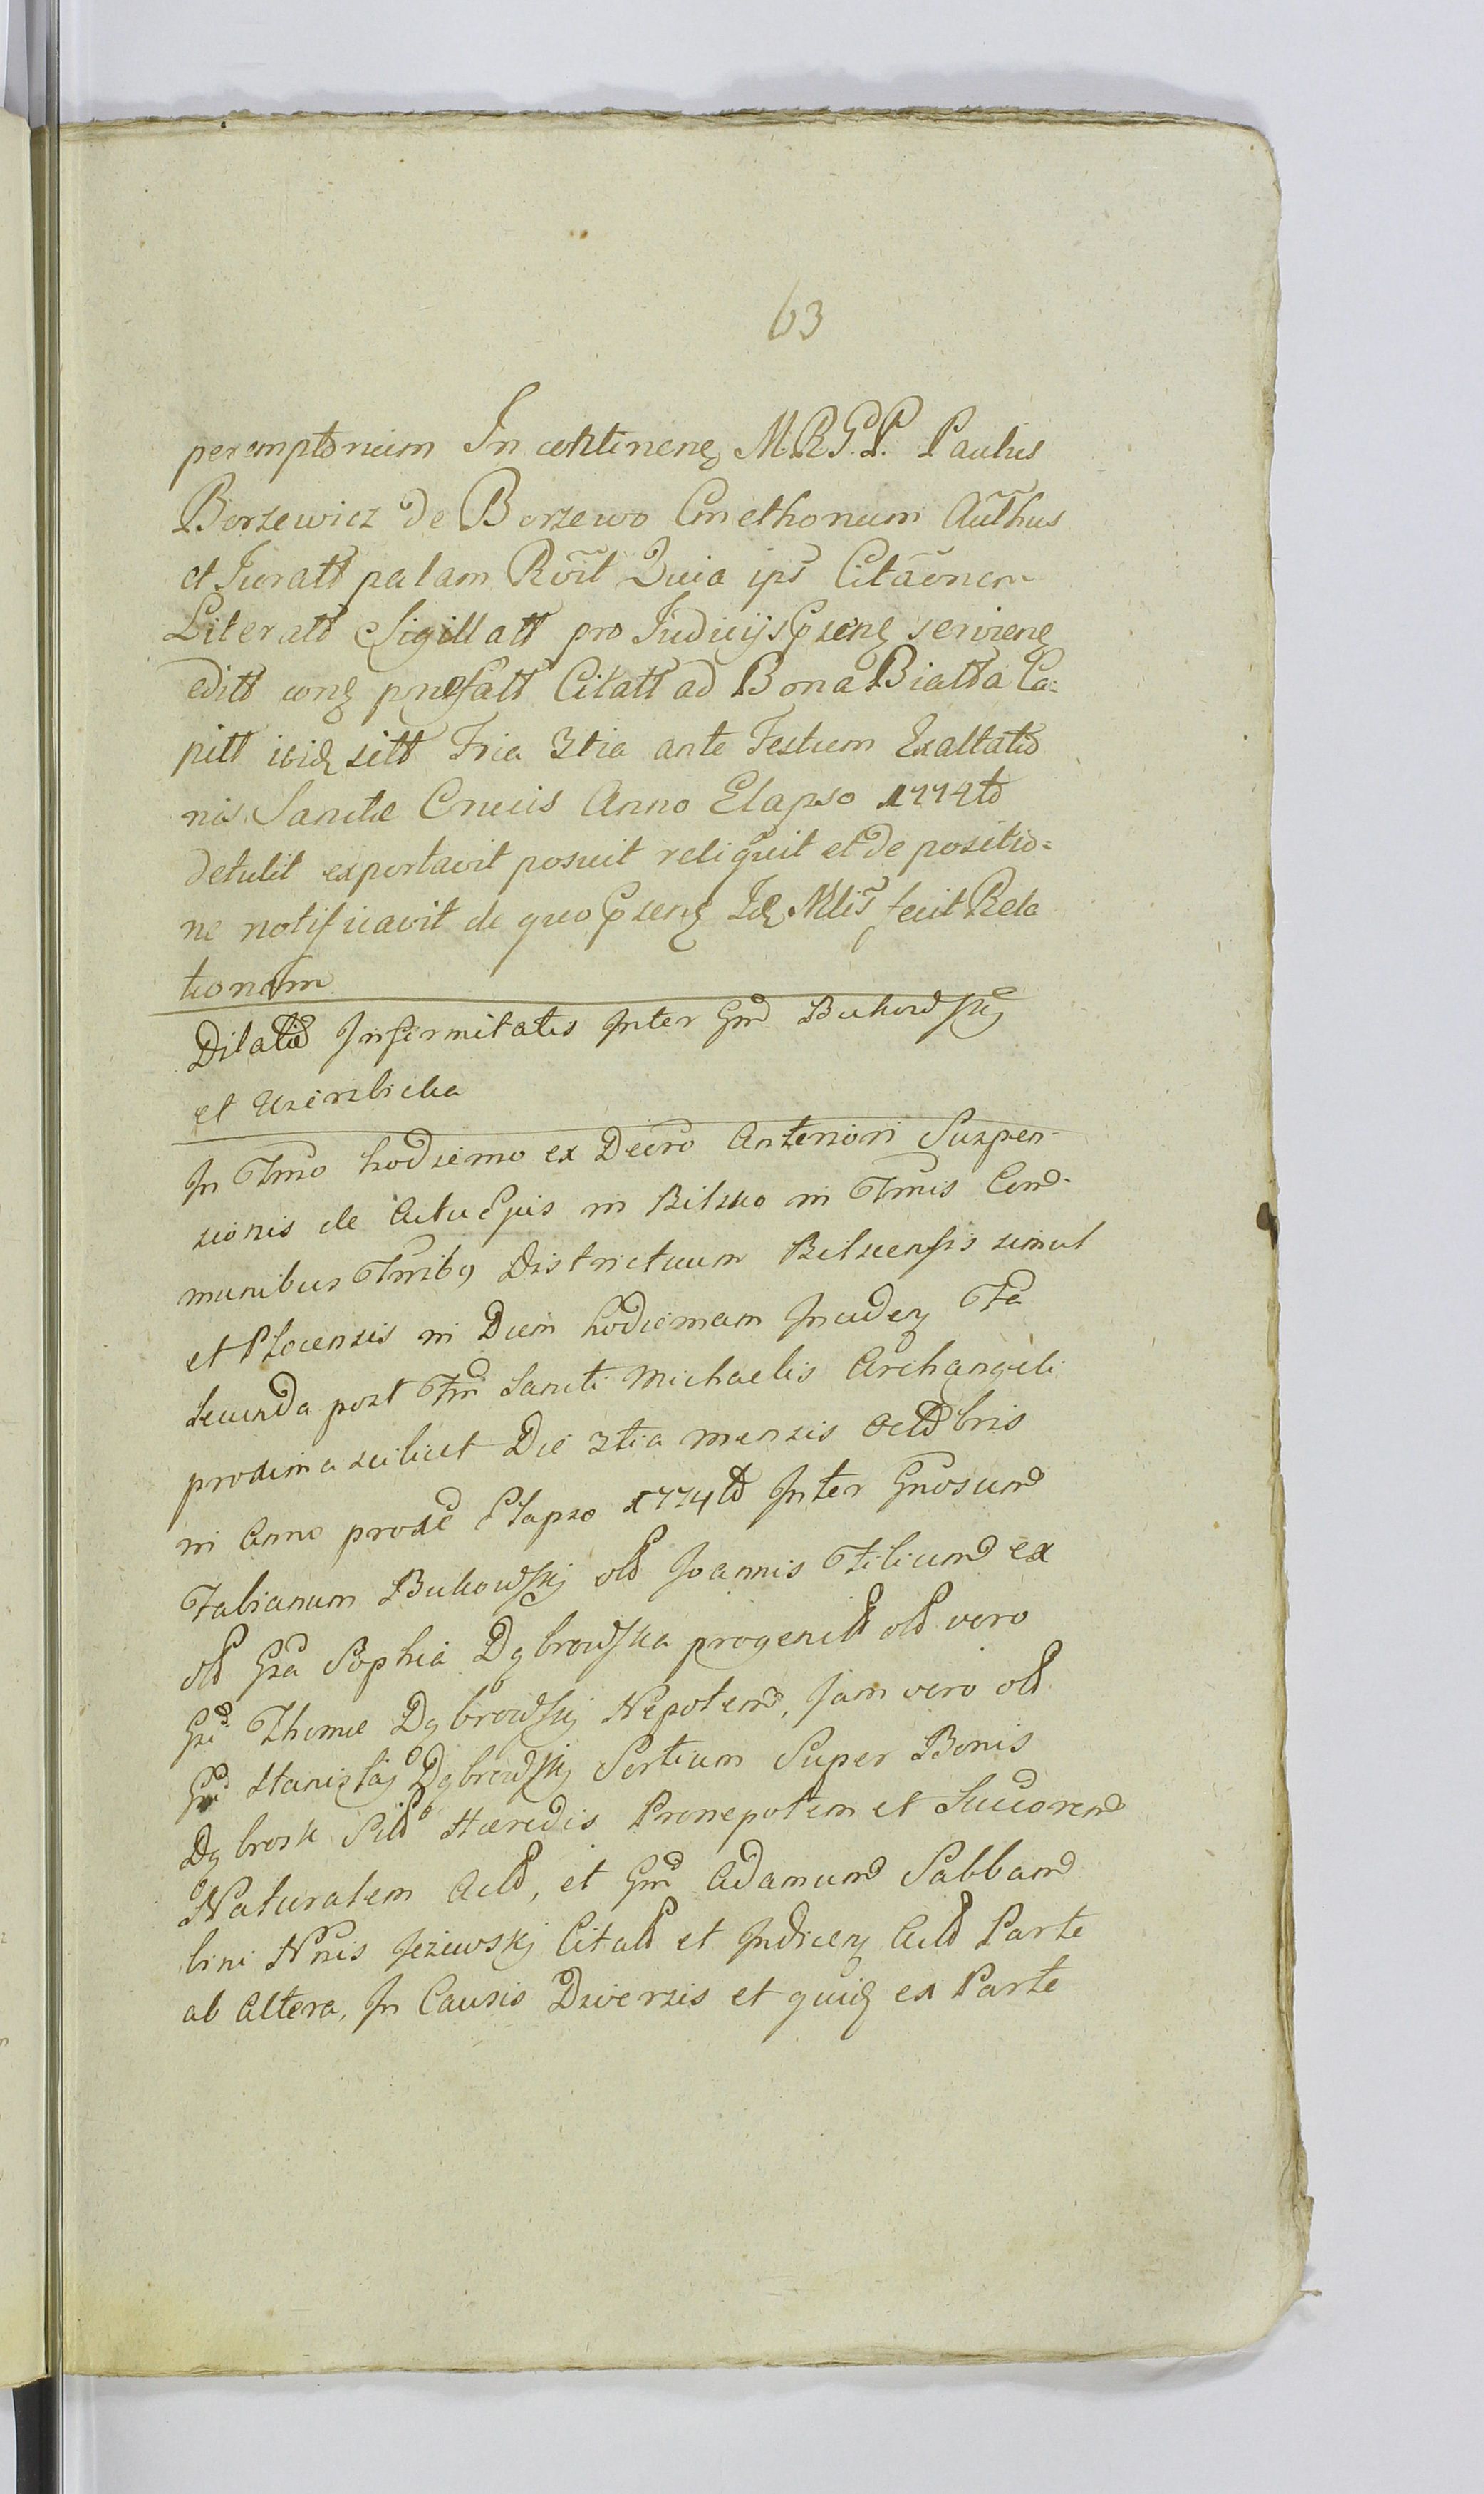 63
peremptorium In continenę M.R.G.P. Paulus
Borzewicz de Borzewo Cmethonum Authus
et Juratt palam Rōīt Quia ips Citaōnem
Literatt Sigillatt pro Judicijs Pzenę serviene
editt conę pnefatt Citatt ad Bona Biatta Ca=
pitt ibidę sitt Fria 3tia ante Festum Exaltatio
nis Sanctæ Crucis Anno Elapso 1774to
detulit exportavit posuit reliquit et de positio=
ne notificavit de quo Pzenę Idę Mlis fecit Rela
tionem
Dilatio Infirmitatis Inter Gnd Bukowskj
et Uzierzbicka
In Tmo hodierno ex Decro Anteriori Suspen-
sionis de Actu Epis in Bilsko in Tmis Com-
munibus Tmibq Districtuum Bilscensis simul
et Plocensis in Diem hodiernam Incidenę Fa
Secunda post Fm Sancti Michaelis Archangeli
proxima scilicet Die 3tia mensis Octobris
in Anno proxe Elapso 1774to Inter Gnosum
Fabianum Bukowskj old Joannis Filium ex
old Gza Sophia Dąbrowska progenitt old vero
Gzi Thomæ Dąbrowskj Nepotem, Jam vero old
Gzi Stanislaj Dąbrowskj Sortium Super Bonis
Dąbrosk Sitt Hæredis Pronepotem et Succorem
Naturalem Actt, et Gnd Adamum Sabbam
bini Nnis Jeziewskj Citatt et Indicenę Actt Parte
ab Altera, In Causis Diversis et quidę ex Parte